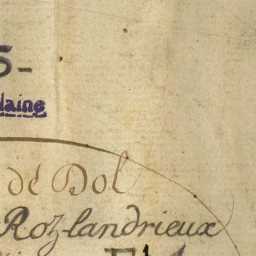 5-
laine
de Dol
Roz-landrieux